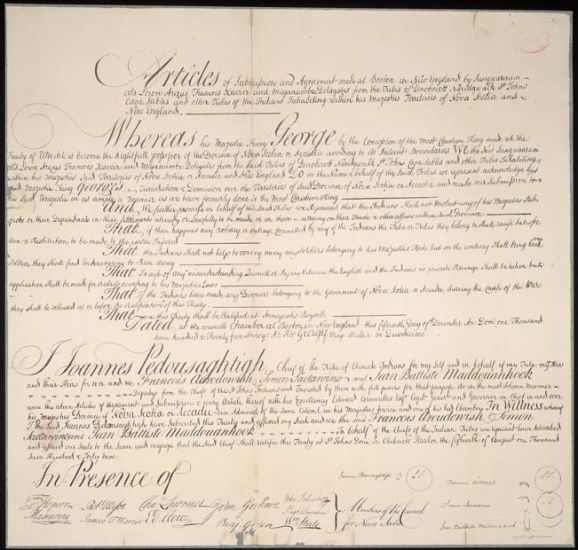 Articles of Submission and Agreement made at Boston in New England by Sanguaaram
als Loron Arexus François Xavier and Meganumbe Delegates from the Tribes of Penobscott Naridgwalk St. Johns
Cape Sables and other Tribes of the Indians Inhabiting within his Majestys Territories of Nova Scotia and
New England.
Whereas his Majestie King George by the Concession of the Most Christian King made at the
Treaty of Utrecht is become the Rightfull possessor of the Province of Nova Scotia or Accadie according to its Antient Boundaries WE the said Sanguaaram
als Loron Francois Xavier and Meganumbe Delegates from the said Tribes of Penobscott Naridgwalk St. Johns Cape Sables and other Tribes Inhabiting
within his Majestys said Territories of Nova Scotia or Accadie and New England DO in the Name & behalf of the said Tribes we represent acknowledge his
said Majestie King GEORGES Jurisdiction & Dominion over the Territories of said Province of Nova Scotia or Accadie and make our Submission to
his said Majestie in as ample a manner as we have formerly done to the Most Christian King
And We further promise in behalf of the said Tribes we Represent that the Indians shall not Molest any of his Majesties Sub-
jects or their Dependants in their Settlements already or Lawfully to be made or in their carrying on their Trade & other affairs within said Province
That if there happens any robbery or outrage Committed by any of the Indians the Tribe or Tribes they belong to shall cause Satisfac-
tion & Restitution to be made to the parties Injured
That the Indians shall not help to convey away any Soldiers belonging to his Majesties Forts but on the contrary shall bring back any
Soldier they shall find Endeavouring to Run away
That In case of any misunderstanding Quarrell or Injury between the English and the Indians no private Revenge shall be taken but
application shall be made for redress according to his Majesties Laws
That if the Indians have made any Prisoners belonging to the Goverment of Nova Scotia or Accadie during the Course of the War
they shall be released at or before the Ratification of this Treaty
That this Treaty shall be Ratified at Annapolis Royall
Dated at the Council Chamber at Boston in New England this fifteenth Day of December An Dom. one Thousand
seven hundred & Twenty five
I Joannes Pedousaghtigh Chief of the Tribe of Chinecto Indians for my Self and in behalf of my Tribe my Heirs
and their Heirs for ever and we Francois Aurodowish Simon Sactarvino and Jean Battiste Maddouanhook
Deputys from the Chiefs of the St Johns Indians and Invested by them with full powers for that purpose do in the most Solemn Manner
renew the above Articles of Agreement and Submission & every Article thereof with his Excellency Edward Cornwallis Esqr Captn Genl and Governor in Chief in and over
his Majestys Province of Nova Scotia or Accadie Vice Admiral of the same Colonel in his Majestys Service and one of his Bed Chamber In Witness whereof
I the said Joannes Pedousaghtigh have Subscribed this Treaty and affixed my Seal and we the said Francois Aurodowish Simon
Sactarvino & Jean Battiste Maddouanhook In behalf of the Chiefs of the Indian Tribes we represent have Subscribed
and affixed our Seals to the same and engage that the said Chiefs shall Ratifie this Treaty at St Johns Done in Chibucto Harbor the fifteenth of August one Thousand
seven Hundred & Forty nine
In Presence of
P. Hopson
Mascarene
Robt Ellison
James T. Mercer
Cha Lawrence
Ed How
John Gorham
Benj Green
John Salusbury
Hugh Davidson
Wm Steele
Members of the Council
for Nova Scotia